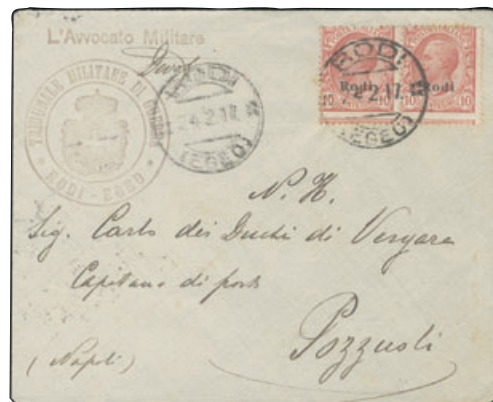 L'Avvocato Militare
TRIBUNALE MILITARE DI GUERRA
* RODI - EGEO *
RODI
24.2.17.
(EGEO)
RODI
24.2.17.
(EGEO)
Rodi Rodi
10 10 10
N. H.
Sig. Carlo dei Duchi di Vergara
Capitano di porto
Pozzuoli
(Napoli)